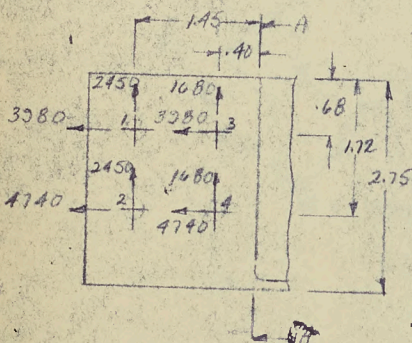 1.45 A
.40
2450 1680
3980 1 3980 3
.68
1.72
2450 1680
2.75
4740 2 4
4740
A